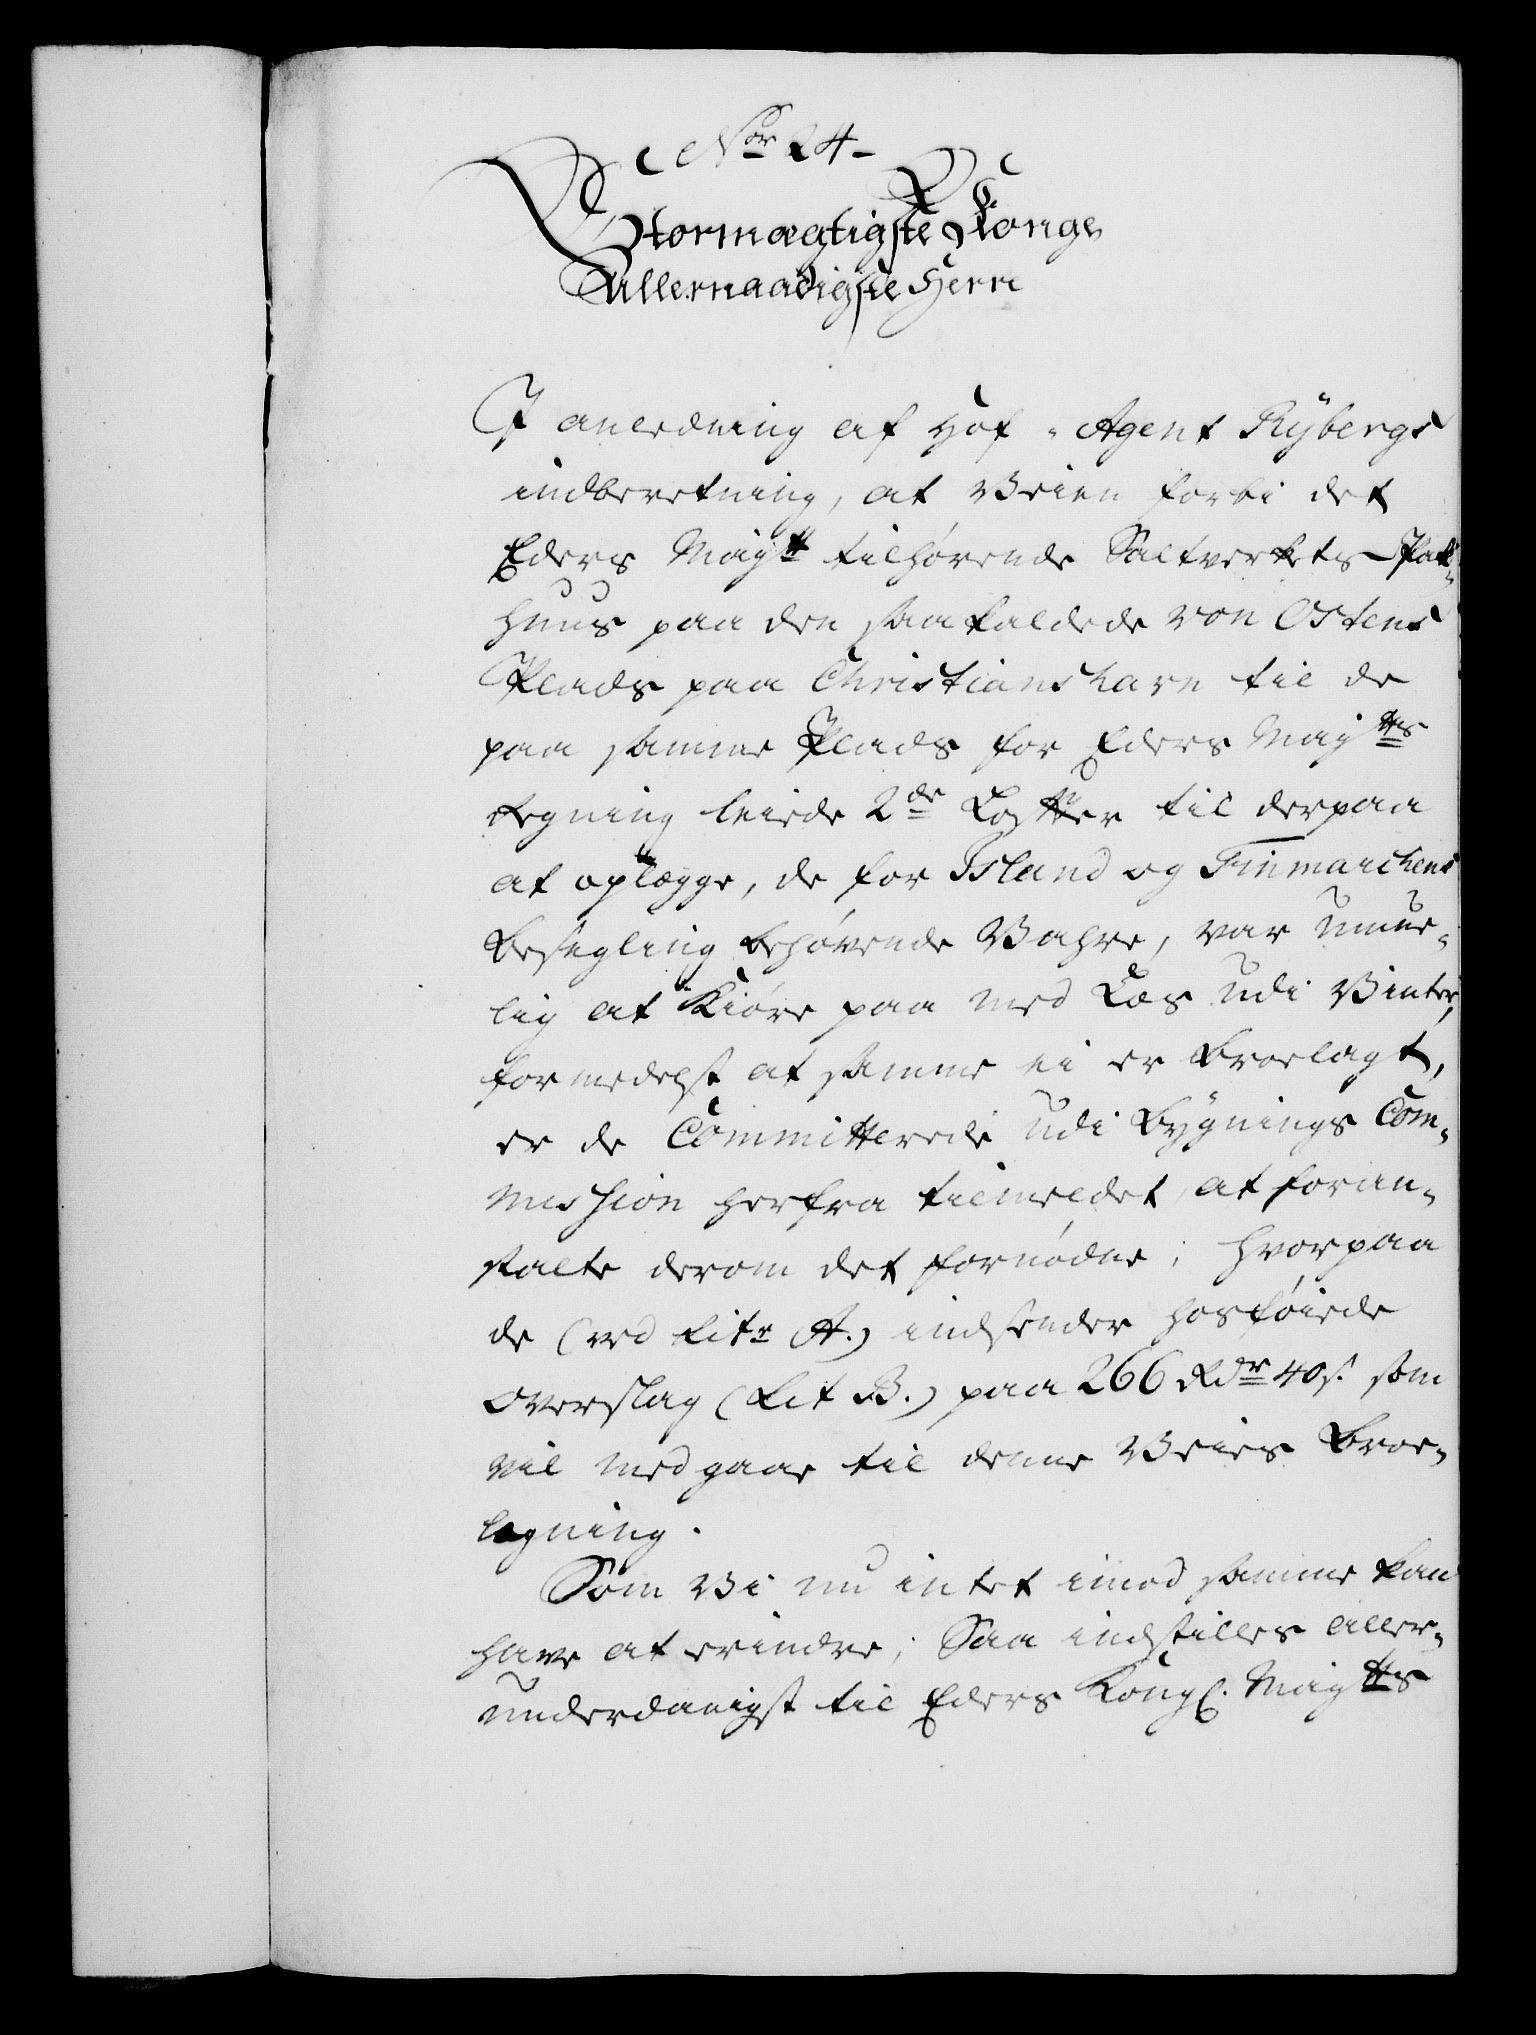 Nor 24-
Stormægtigste Konge
Allernaadigste Herre
I anledning af Hof-Agent Rÿbergs
indberetning, at Veien forbi det
Eders Mayt tilhørende Saltverkets Pak-
huus paa den saa kaldede von Ostens
Plads paa Christianshavn til de
paa samme Plads for Eders Mayts
regning leiede 2de Loffter til derpaa
at oplægge, de for Island og Finmarchens
Besegling behøvende Vahre, var umue-
lig at kiöre paa med Læs udi Vinter,
formedelst at samme ei er broelagt,
er de Committerede udi Bygnings Com-
mission herfra tilmeldet at foran-
stalte derom det fornødne; hvorpaa
de (ved Litr A.) indsender hosføiede
overslag (Lit B.) paa 266 Rdr 40 s. som
vil medgaae til denne Veies Broe-
legning.
Som Vi nu intet imod samme kan
have at erindre; Saa indstilles aller-
underdanigst til Eders Kongl. Mayts